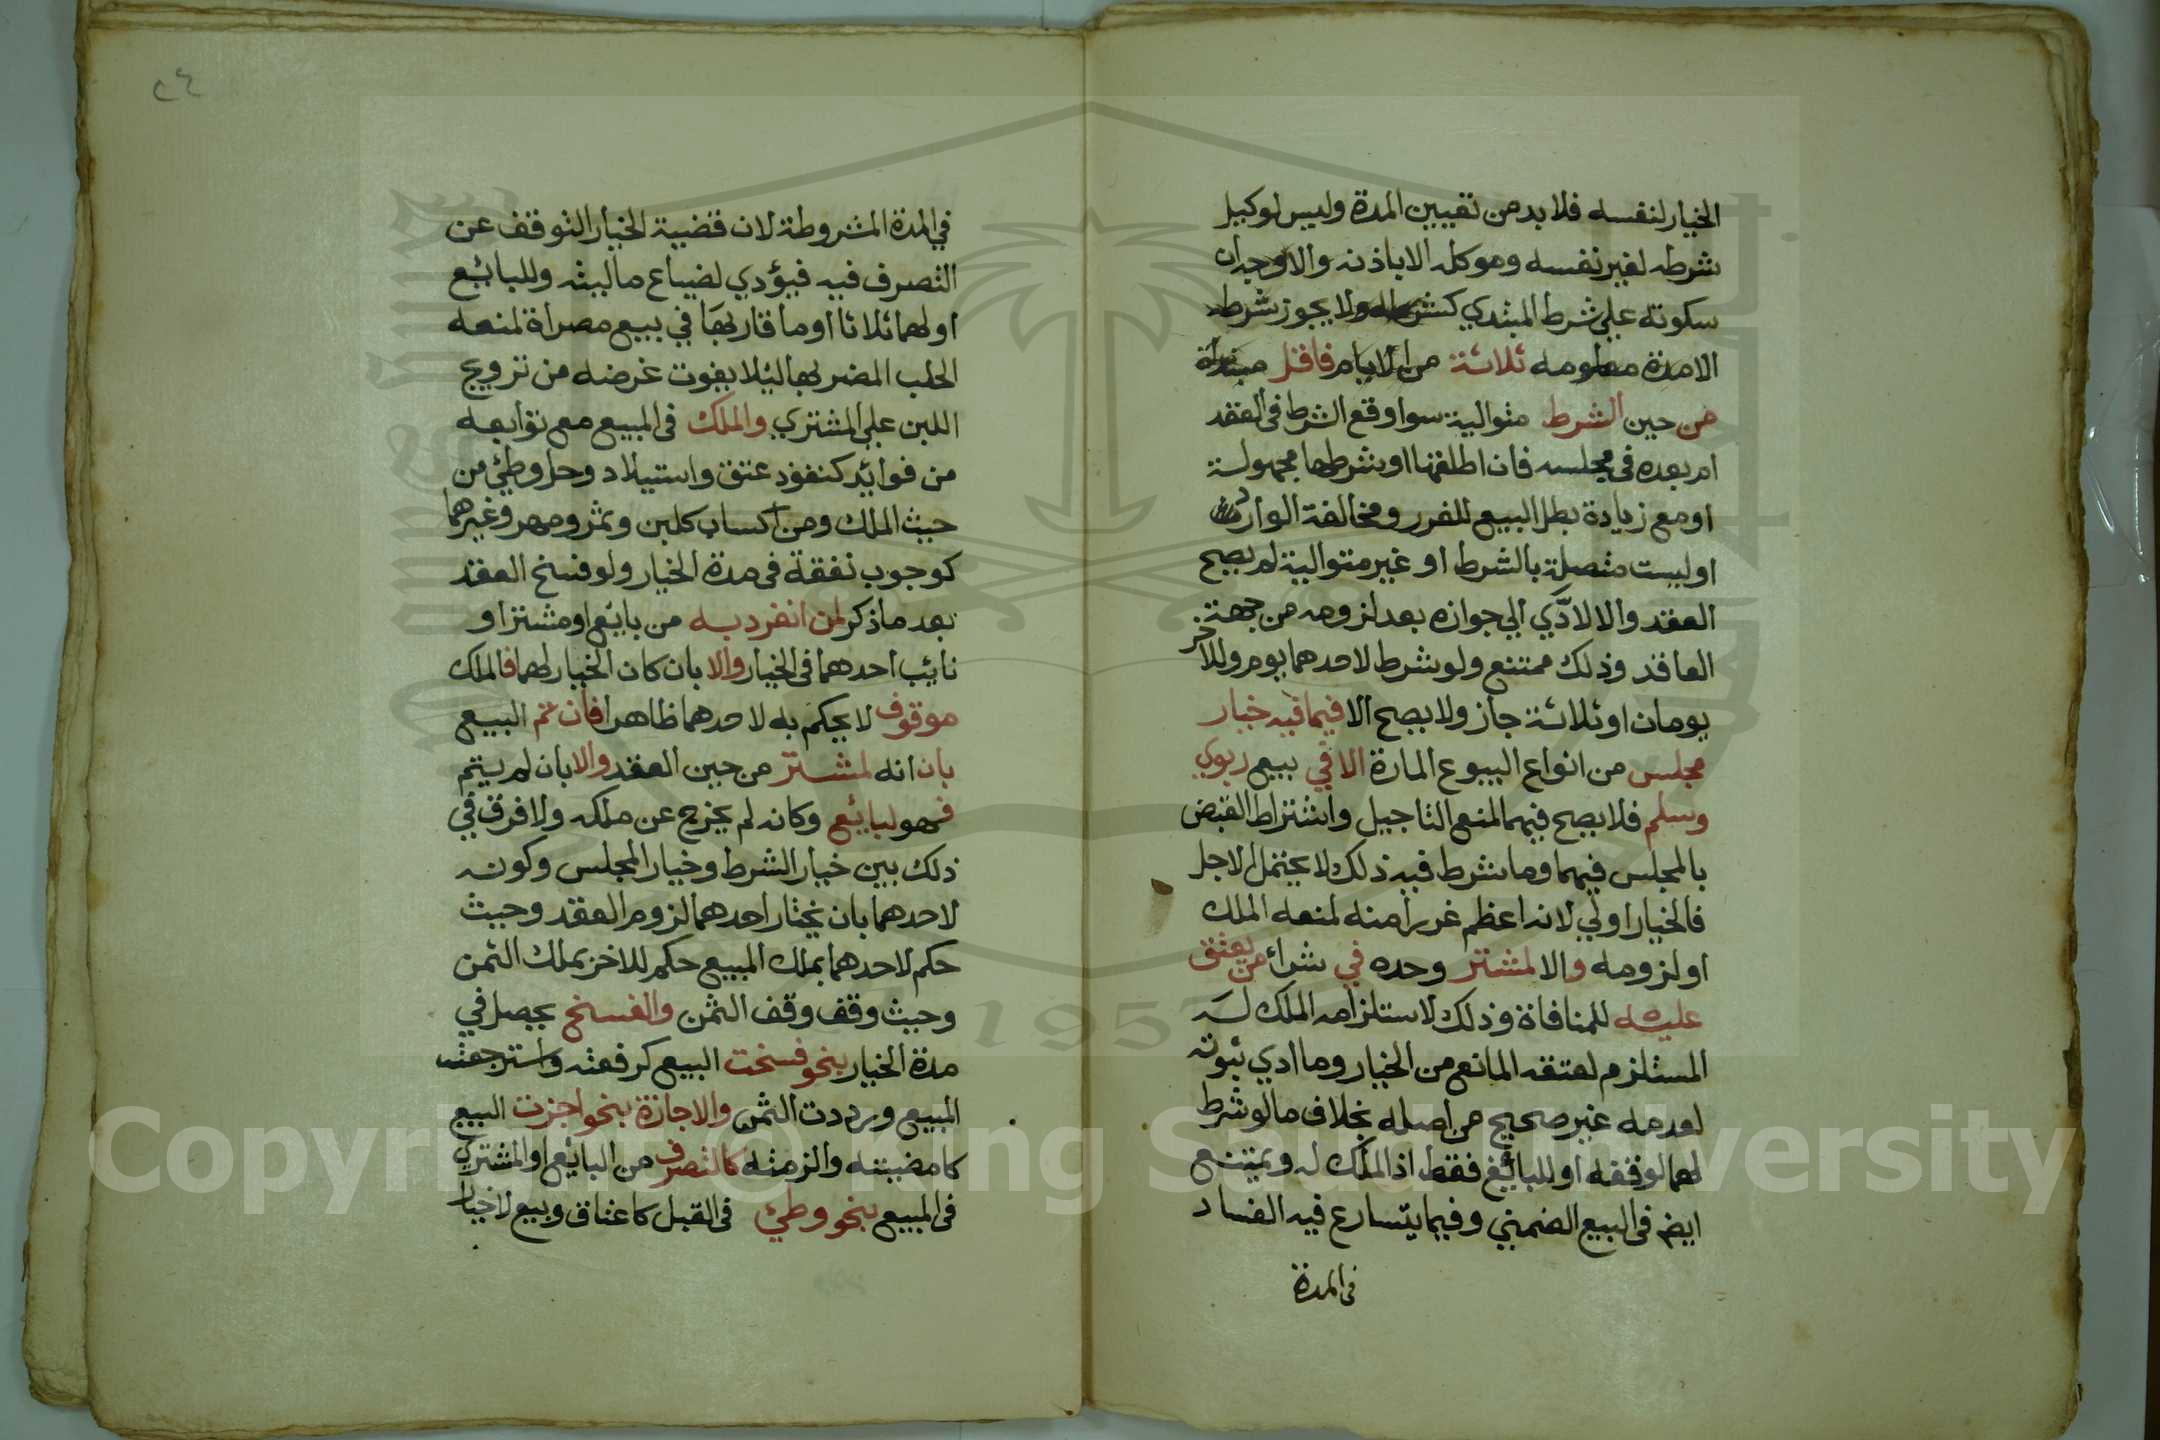 الخيار لنفسه فلا بد من تعيين المدة وليس لوكيل
شرطه لغير نفسه وموكله الا باذنه والاوجه ان
سكوته على شرط المبتدي كشرطه ولا يجوز شرط
الا مدة معلومه ثلاثة من الايام فاقل مبتداة
من حين الشرط متوالية سوا وقع الشرط في العقد
ام بعده في مجلسه فان اطلقها او شرطها مجهولة
او مع زيادة بطل البيع للغرر ومخالفة الوارد
او ليست متصلة بالشرط او غير متوالية لم يصح
العقد والا لادّي الي جوازه بعد لزومه من جهة
العاقد وذلك ممتنع ولو شرط لاحدهما يوم وللاخر
يومان او ثلاثة جاز ولا يصح الا فيما فيه خيار
مجلس من انواع البيوع المارة الا في بيع ربوي
وسلم فلا يصح فيهما لمنع التاجيل واشتراط القبض
بالمجلس فيهما وما شرط فيه ذلك لا يحتمل الاجل
فالخيار اولي لانه اعظم غررا منه لمنعه الملك
او لزومه والا لمشتر وحده في شراء من يعتق
عليه للمنافاة وذلك لاستلزامه الملك له
المستلزم لعتقه المانع من الخيار وما ادي ثبوته
لعدمه غير صحيح من اصله بخلاف ما لو شرط
لهما لوقفه او للبائع فقط اذ الملك له ويمتنع
ايض في البيع الضمني وفيما يتسارع فيه الفساد
في المدة
٢٤
في المدة المشروطة لان قضية الخيار التوقف عن
التصرف فيه فيؤدي لضياع ماليته وللبائع
او لهما ثلاثا او ما قاربها في بيع مصراة لمنعه
الحلب المضر بها ليلا يفوت غرضه من ترويج
اللبن على المشتري والملك في المبيع مع توابعه
من فوائد كنفوذ عتق واستيلاد وحل وطئ من
حيث الملك ومن اكساب كلبن وثمر ومهر وغيرهما
كوجوب نفقة في مدة الخيار ولو فسخ العقد
بعد ما ذكر لمن انفرد به من بائع او مشتر او
نائب احدهما في الخيار والا بان كان الخيار لهما فالملك
موقوف لا يحكم به لاحدهما ظاهرا فان تم البيع
بان انه لمشتر من حين العقد والا بان لم يتم
فهو لبائع وكانه لم يخرج عن ملكه ولا فرق في
ذلك بين خيار الشرط وخيار المجلس وكونه
لاحدهما بان يختار احدهما لزوم العقد وحيث
حكم لاحدهما بملك المبيع حكم للاخر بملك الثمن
وحيث وقف وقف الثمن والفسخ يحصل في
مدة الخيار بنحو فسخت البيع كرفعته واسترجعت
المبيع ورددت الثمن والاجازة بنحو اجزت البيع
كامضيته والزمته كالتصرف من البايع او المشتري
في المبيع بنحو وطئ في القبل كاعتاق وبيع لا خيار
Copyright © King Saud University
1957